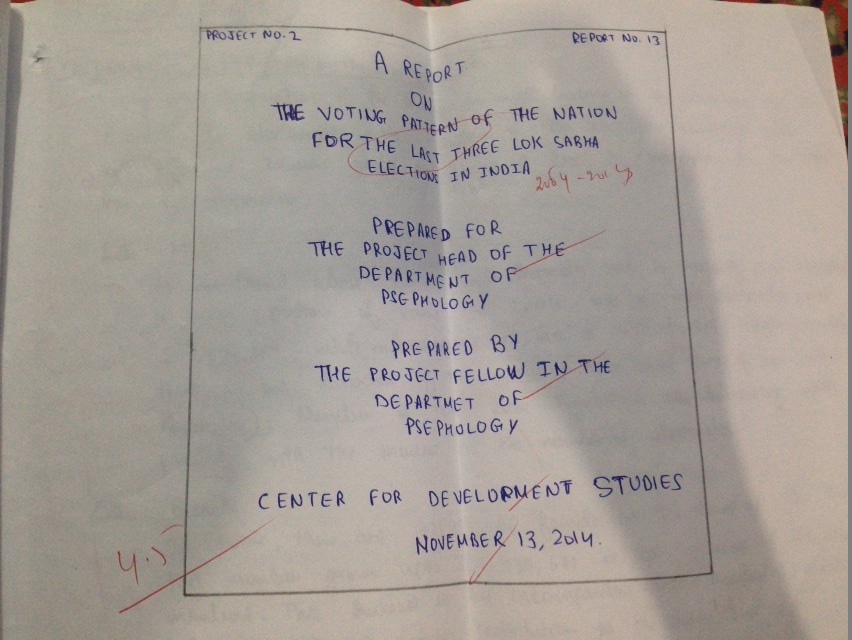 PROJECT NO. 2
REPORT NO. 13
A REPORT
ON
THE VOTING PATTERN OF THE NATION
FOR THE LAST THREE LOK SABHA
ELECTIONS IN INDIA
PREPARED FOR
THE PROJECT HEAD OF THE
DEPARTMENT OF
PSEPHOLOGY
PREPARED BY
THE PROJECT FELLOW IN THE
DEPARTMET OF
PSEPHOLOGY
CENTER FOR DEVELOPMENT STUDIES
NOVEMBER 13, 2014.
4.5